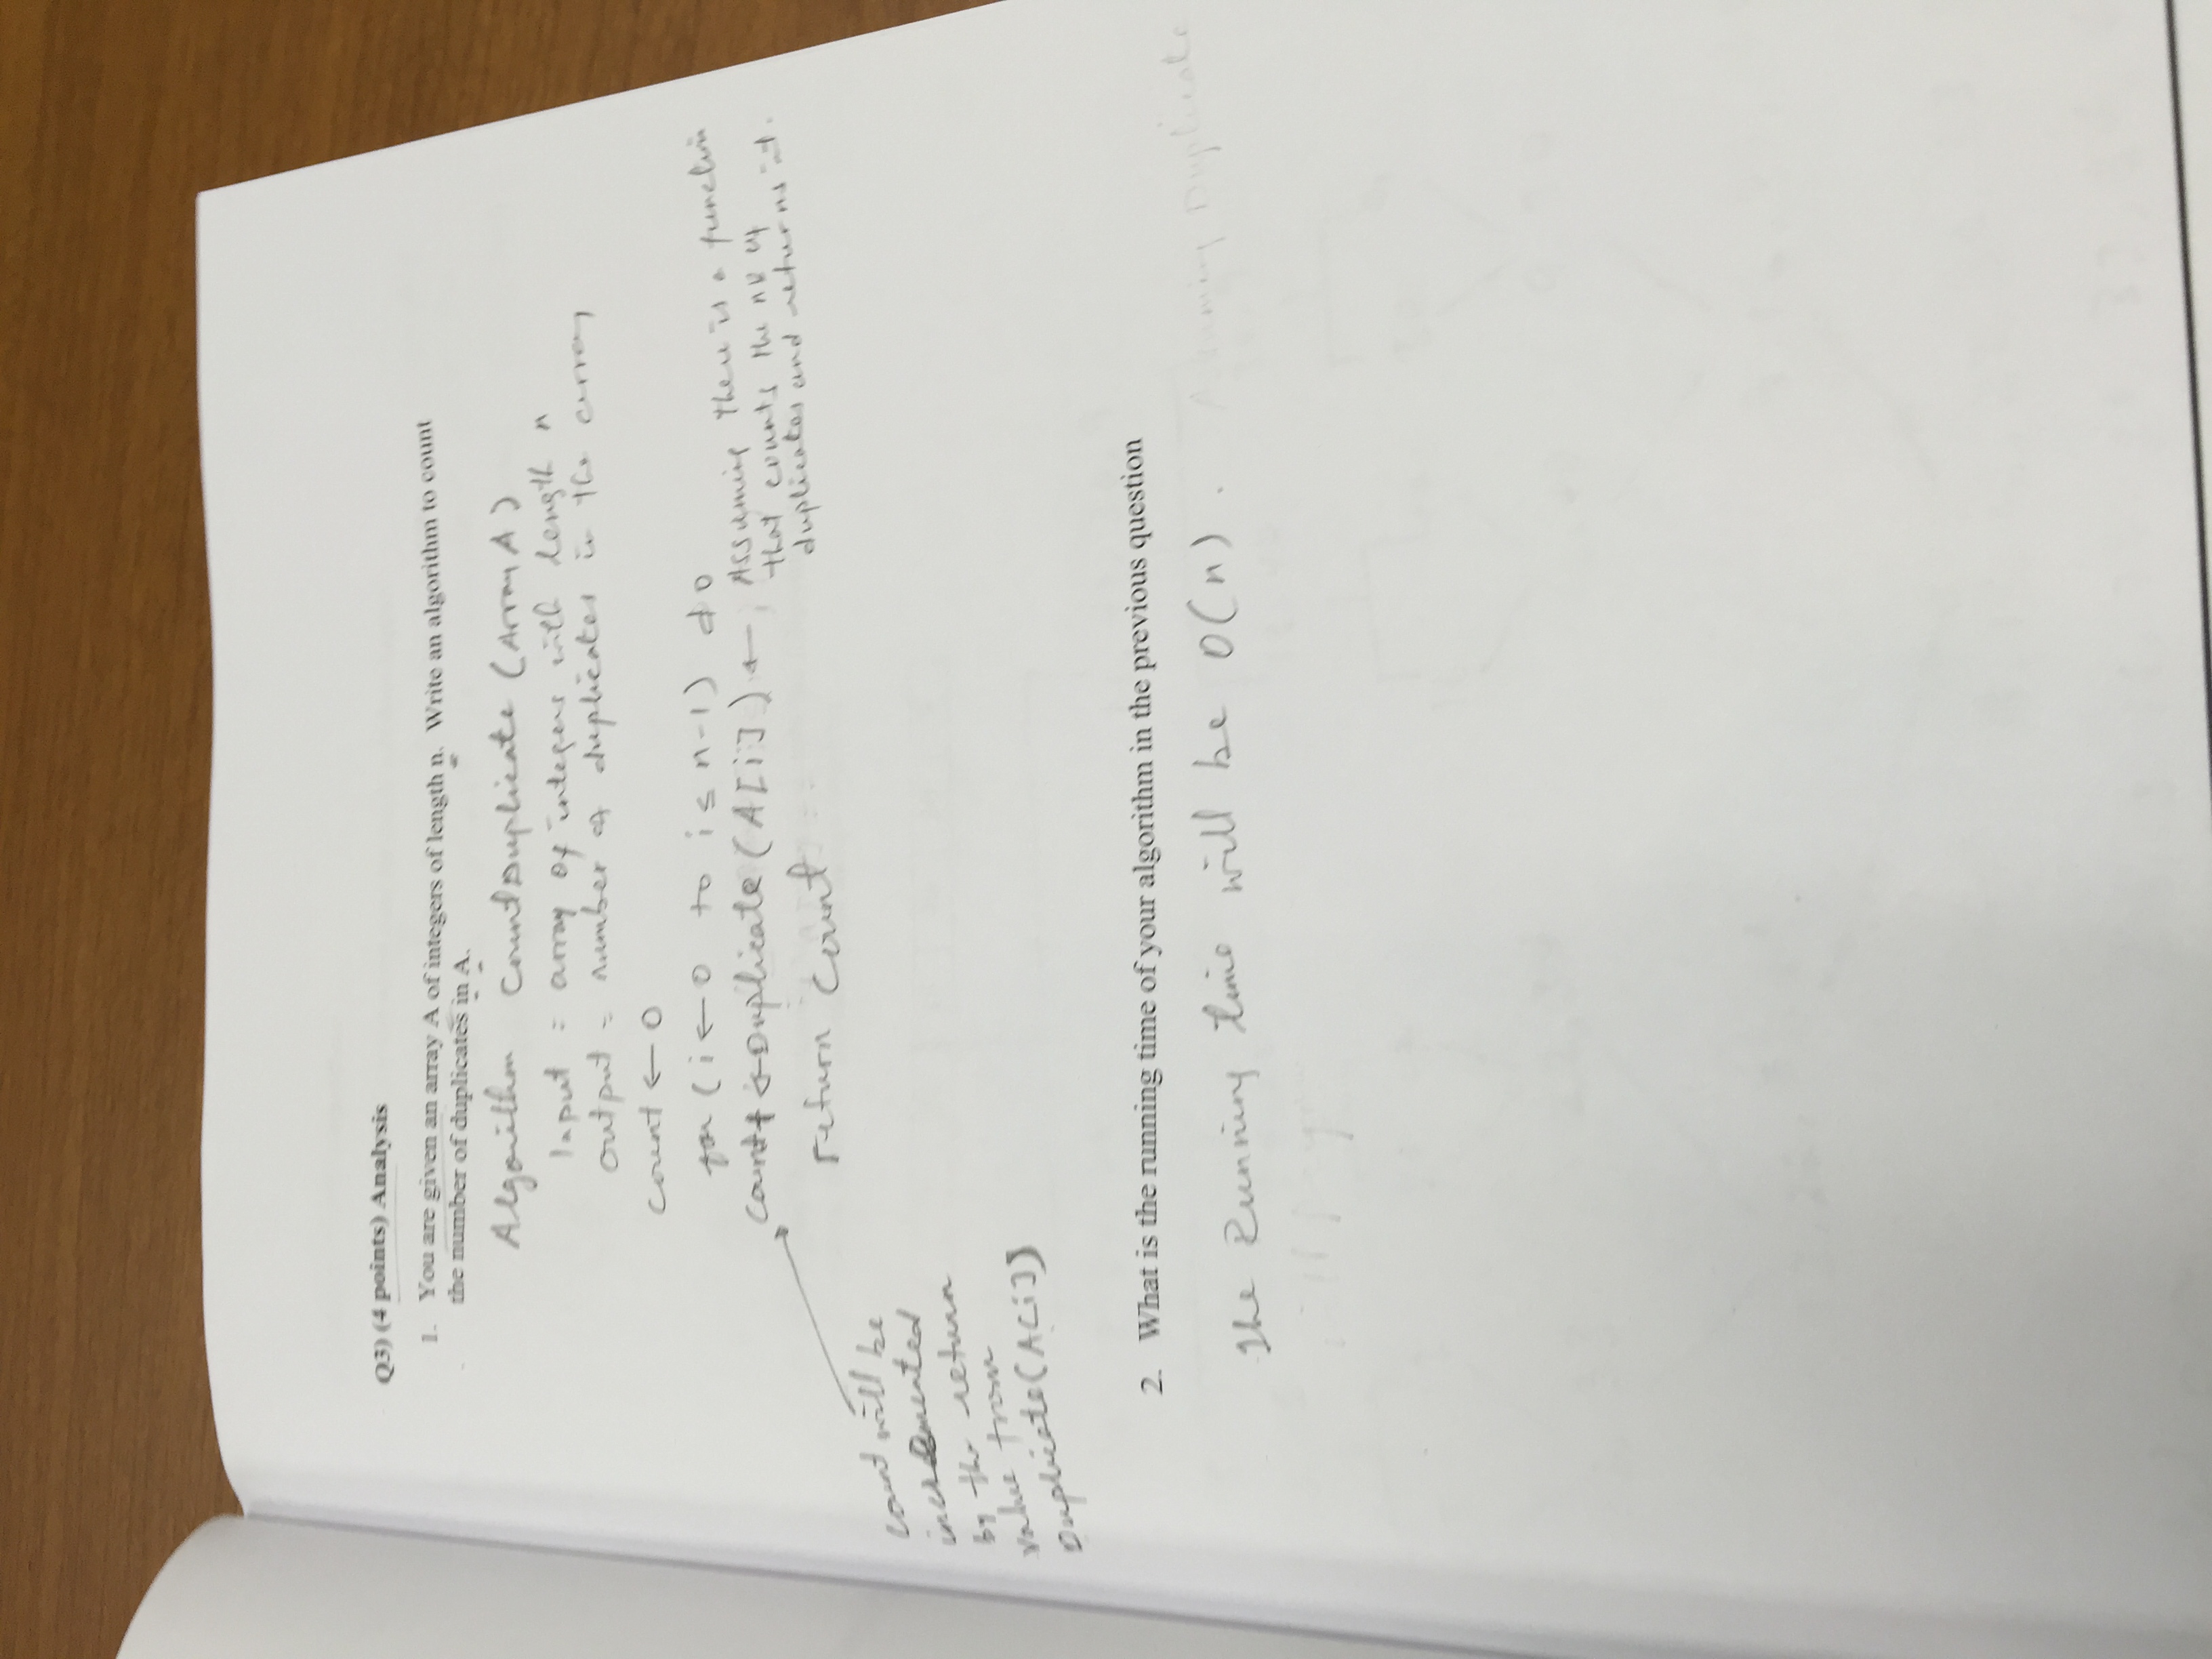 Q3) (4 points) Analysis
1. You are given an array A of integers of length n. Write an algorithm to count
the number of duplicates in A.
Algorithm CountDuplicate (Array A)
Input = array of integers with length n
output = number of duplicates in the array
Count ← 0
for (i ← 0 to i ≤ n-1) do
Count+ ← Duplicate (A[i]) ← Assuming there is a function
that counts the nb of
duplicates and returns it.
return Count
Count will be
incremented
by the return
value from
Duplicate(A[i])
2. What is the running time of your algorithm in the previous question
The Running time will be O(n). Assuming Duplicate